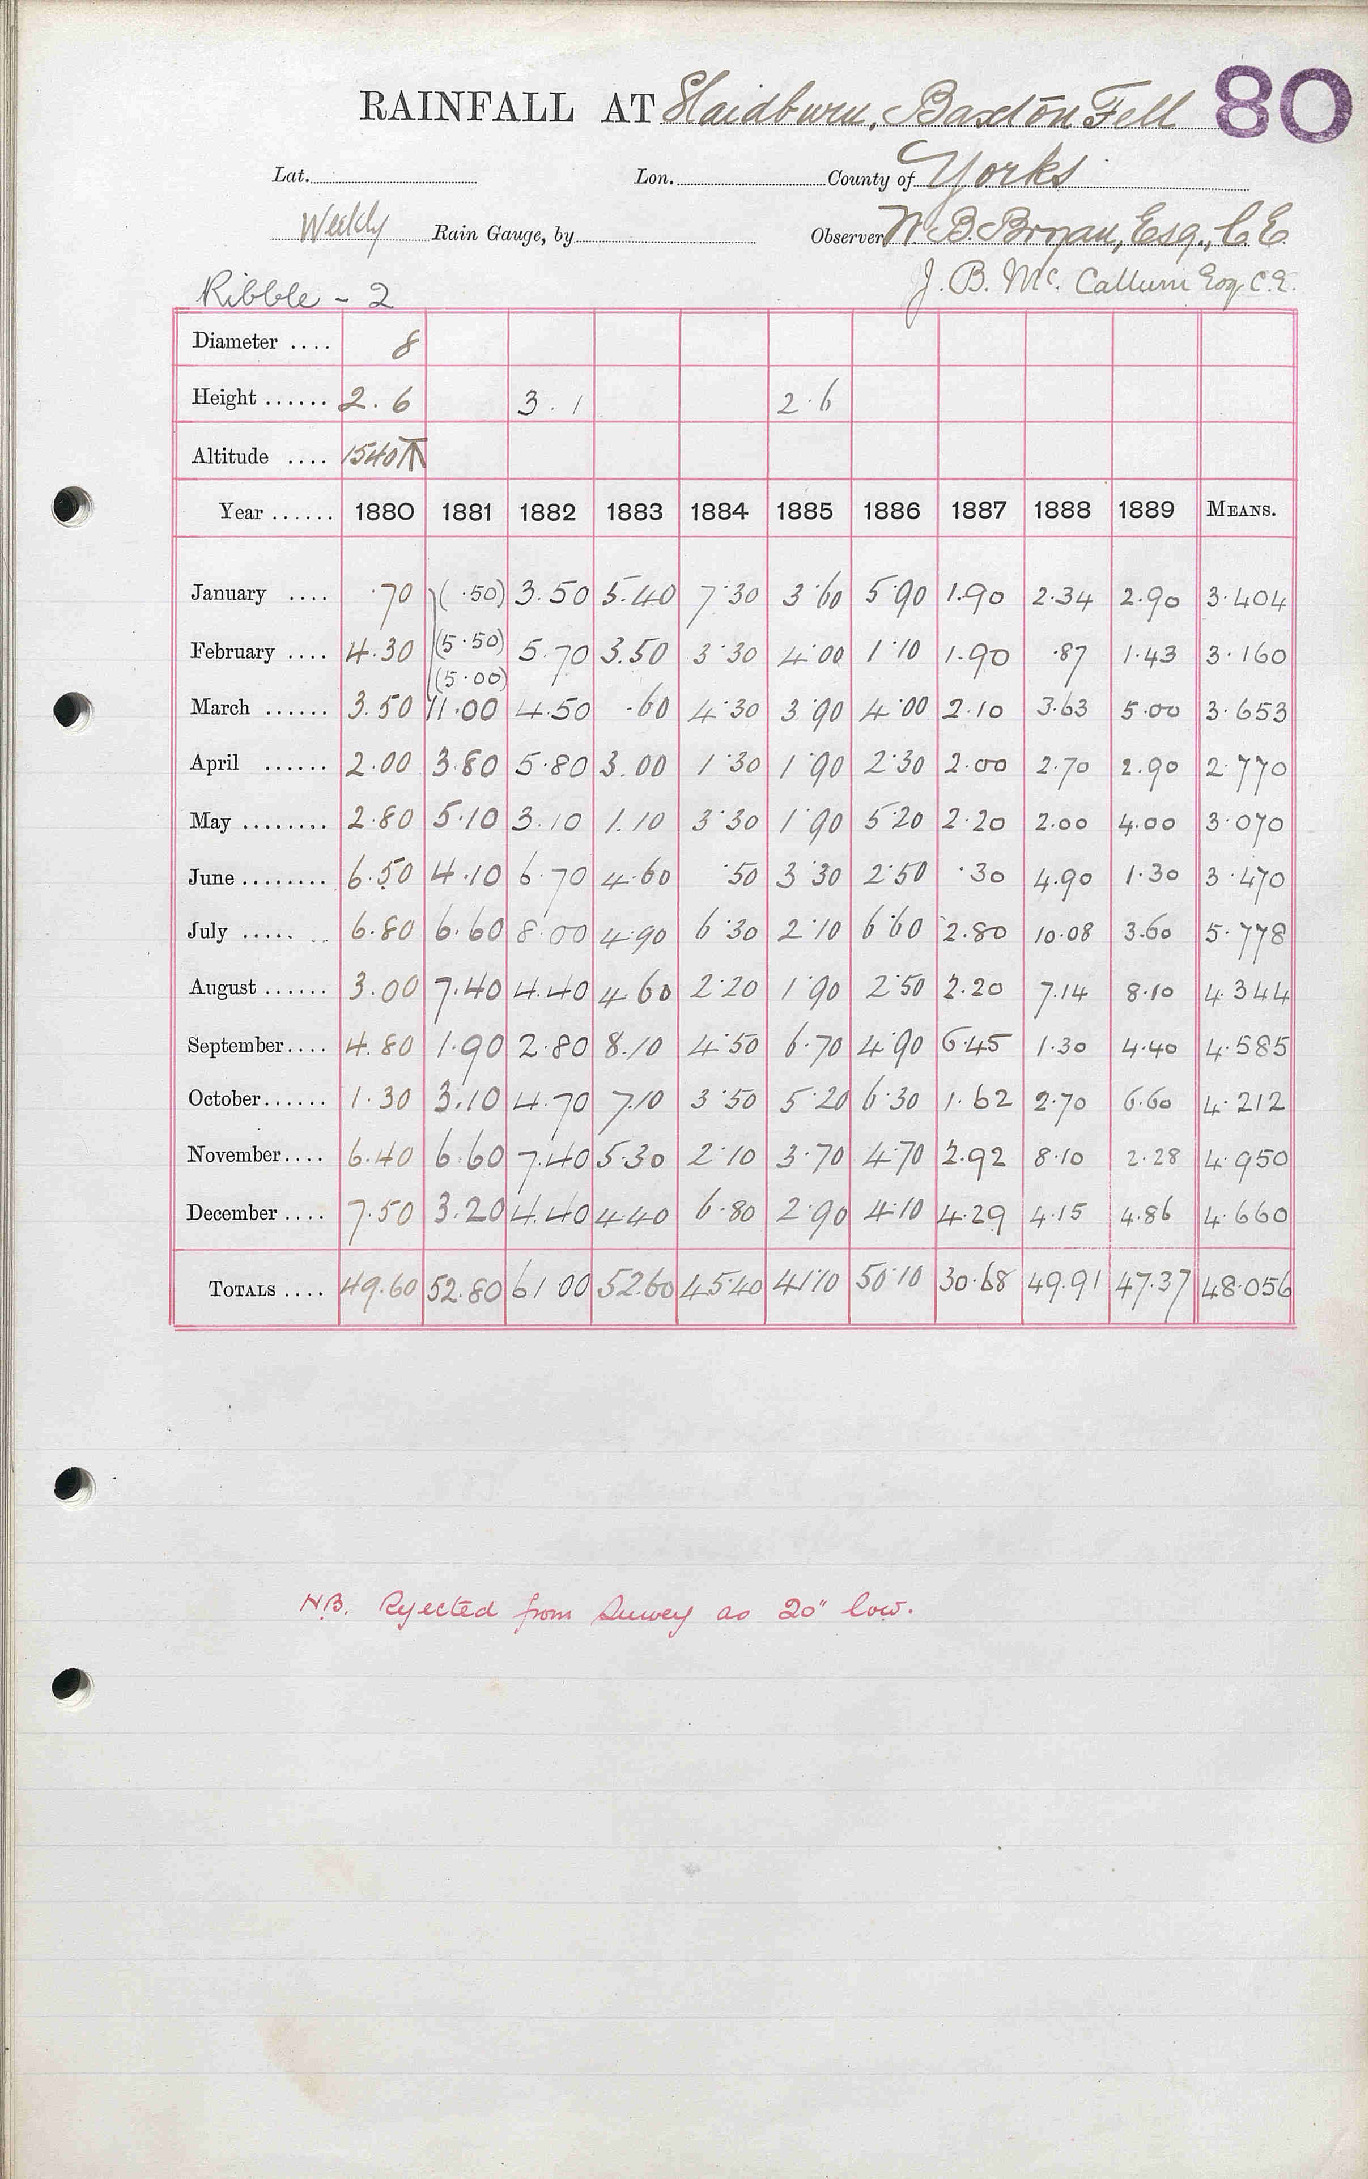 80
RAINFALL AT Slaidburn, Baxton Fell
Lat. Lon. County of Yorks
Weekly Rain Gauge, by Observer W. B. Bryan, Esq., C.E.
J. B. Mc. Callum Esq C.E.
Ribble - 2
Diameter .... 8
Height ...... 2.6 3.1 2.6
Altitude .... 1540
Year ...... 1880 1881 1882 1883 1884 1885 1886 1887 1888 1889 MEANS.
January .... .70 (.50) 3.50 5.40 7.30 3.60 5.90 1.90 2.34 2.90 3.404
February .... 4.30 (5.50) 5.70 3.50 3.30 4.00 1.10 1.90 .87 1.43 3.160
(5.00)
March ...... 3.50 11.00 4.50 .60 4.30 3.90 4.00 2.10 3.63 5.00 3.653
April ...... 2.00 3.80 5.80 3.00 1.30 1.90 2.30 2.00 2.70 2.90 2.770
May ........ 2.80 5.10 3.10 1.10 3.30 1.90 5.20 2.20 2.00 4.00 3.070
June ........ 6.50 4.10 6.70 4.60 .50 3.30 2.50 .30 4.90 1.30 3.470
July ..... .. 6.80 6.60 8.00 4.90 6.30 2.10 6.60 2.80 10.08 3.60 5.778
August ...... 3.00 7.40 4.40 4.60 2.20 1.90 2.50 2.20 7.14 8.10 4.344
September.... 4.80 1.90 2.80 8.10 4.50 6.70 4.90 6.45 1.30 4.40 4.585
October...... 1.30 3.10 4.70 7.10 3.50 5.20 6.30 1.62 2.70 6.60 4.212
November.... 6.40 6.60 7.40 5.30 2.10 3.70 4.70 2.92 8.10 2.28 4.950
December .... 7.50 3.20 4.40 4.40 6.80 2.90 4.10 4.29 4.15 4.86 4.660
TOTALS .... 49.60 52.80 61.00 52.60 45.40 41.10 50.10 30.68 49.91 47.37 48.056
N.B. Rejected from Survey as 20" low.